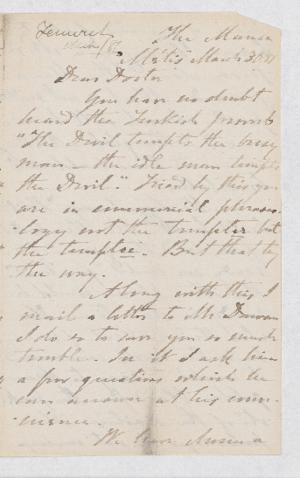 The Manse
Metis March 30
Dear Doctor
You have no doubt
heard the Turkish proverb
"The Devil tempts the busy
man – the idle man tempts
the Devil." Tried by this you
are in commercial phraseo-
logy not the tempter but
the temptee. But that by
the way.
Along with this I
mail a letter to Mr
I do so to save you so much
trouble. In it I ask him
a few questions which he
can answer at his conve-
nience.
We have